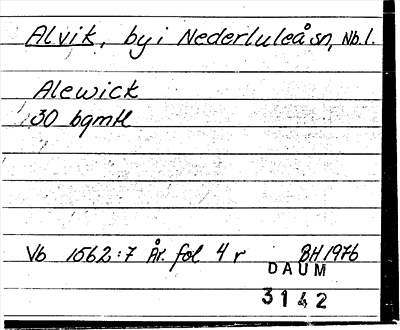 Alvik, by i Nederluleå sn, Nb. l.
Alewick
30 bgmtl
Vb 1562:7 År. fol 4 r BH 1976
DAUM
3142